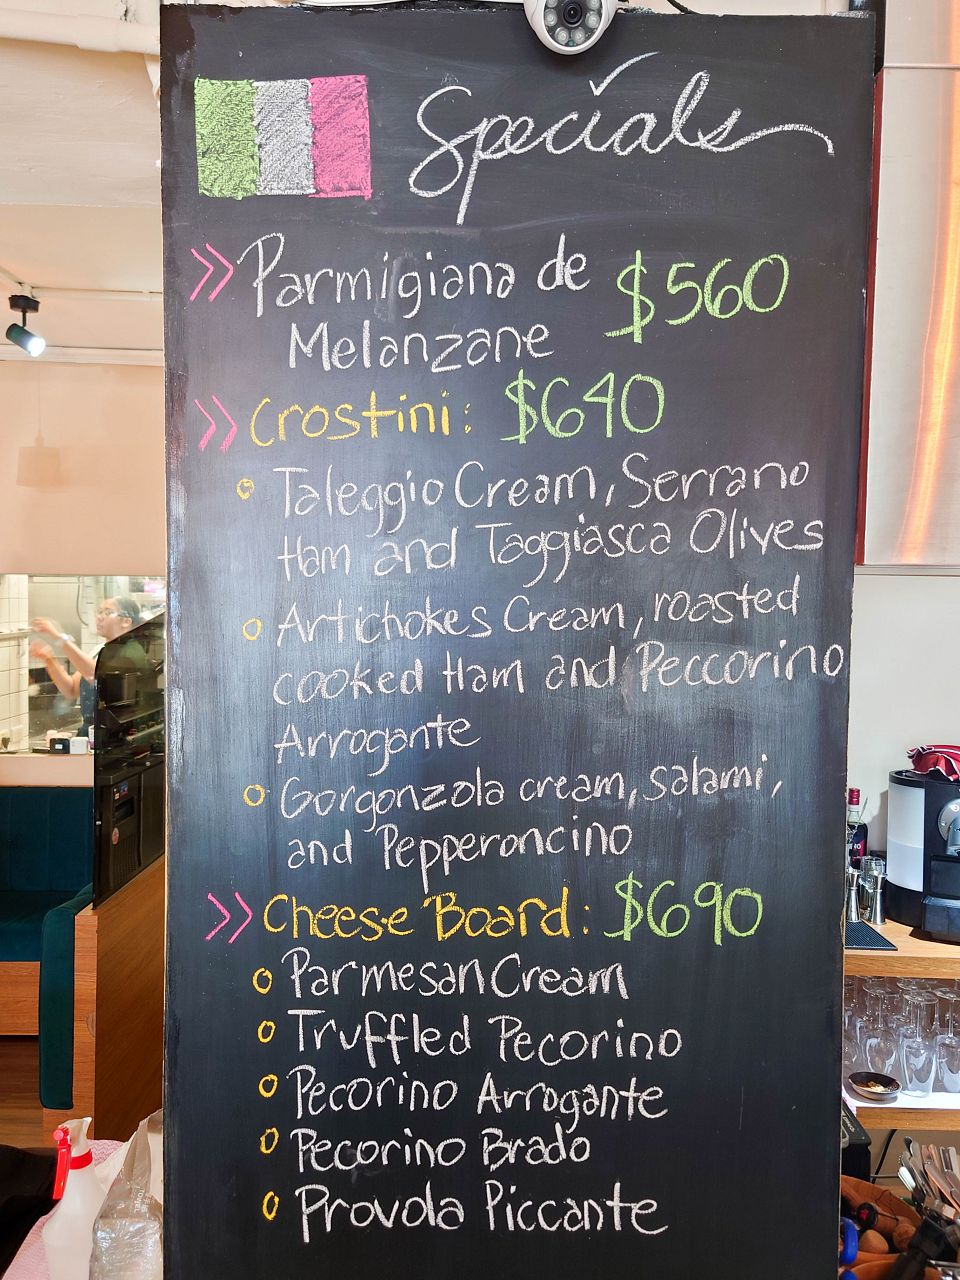 Specials
>> Parmigiana de $560
Melanzane
>> Crostini: $640
Taleggio Cream, Serrano
Ham and Taggiasca Olives
Artichokes Cream, roasted
cooked Ham and Peccorino
Arrogante
Gorgonzola cream, salami,
and Pepperoncino
>> Cheese Board: $690
Parmesan Cream
Truffled Pecorino
Pecorino Arrogante
Pecorino Brado
Provola Piccante